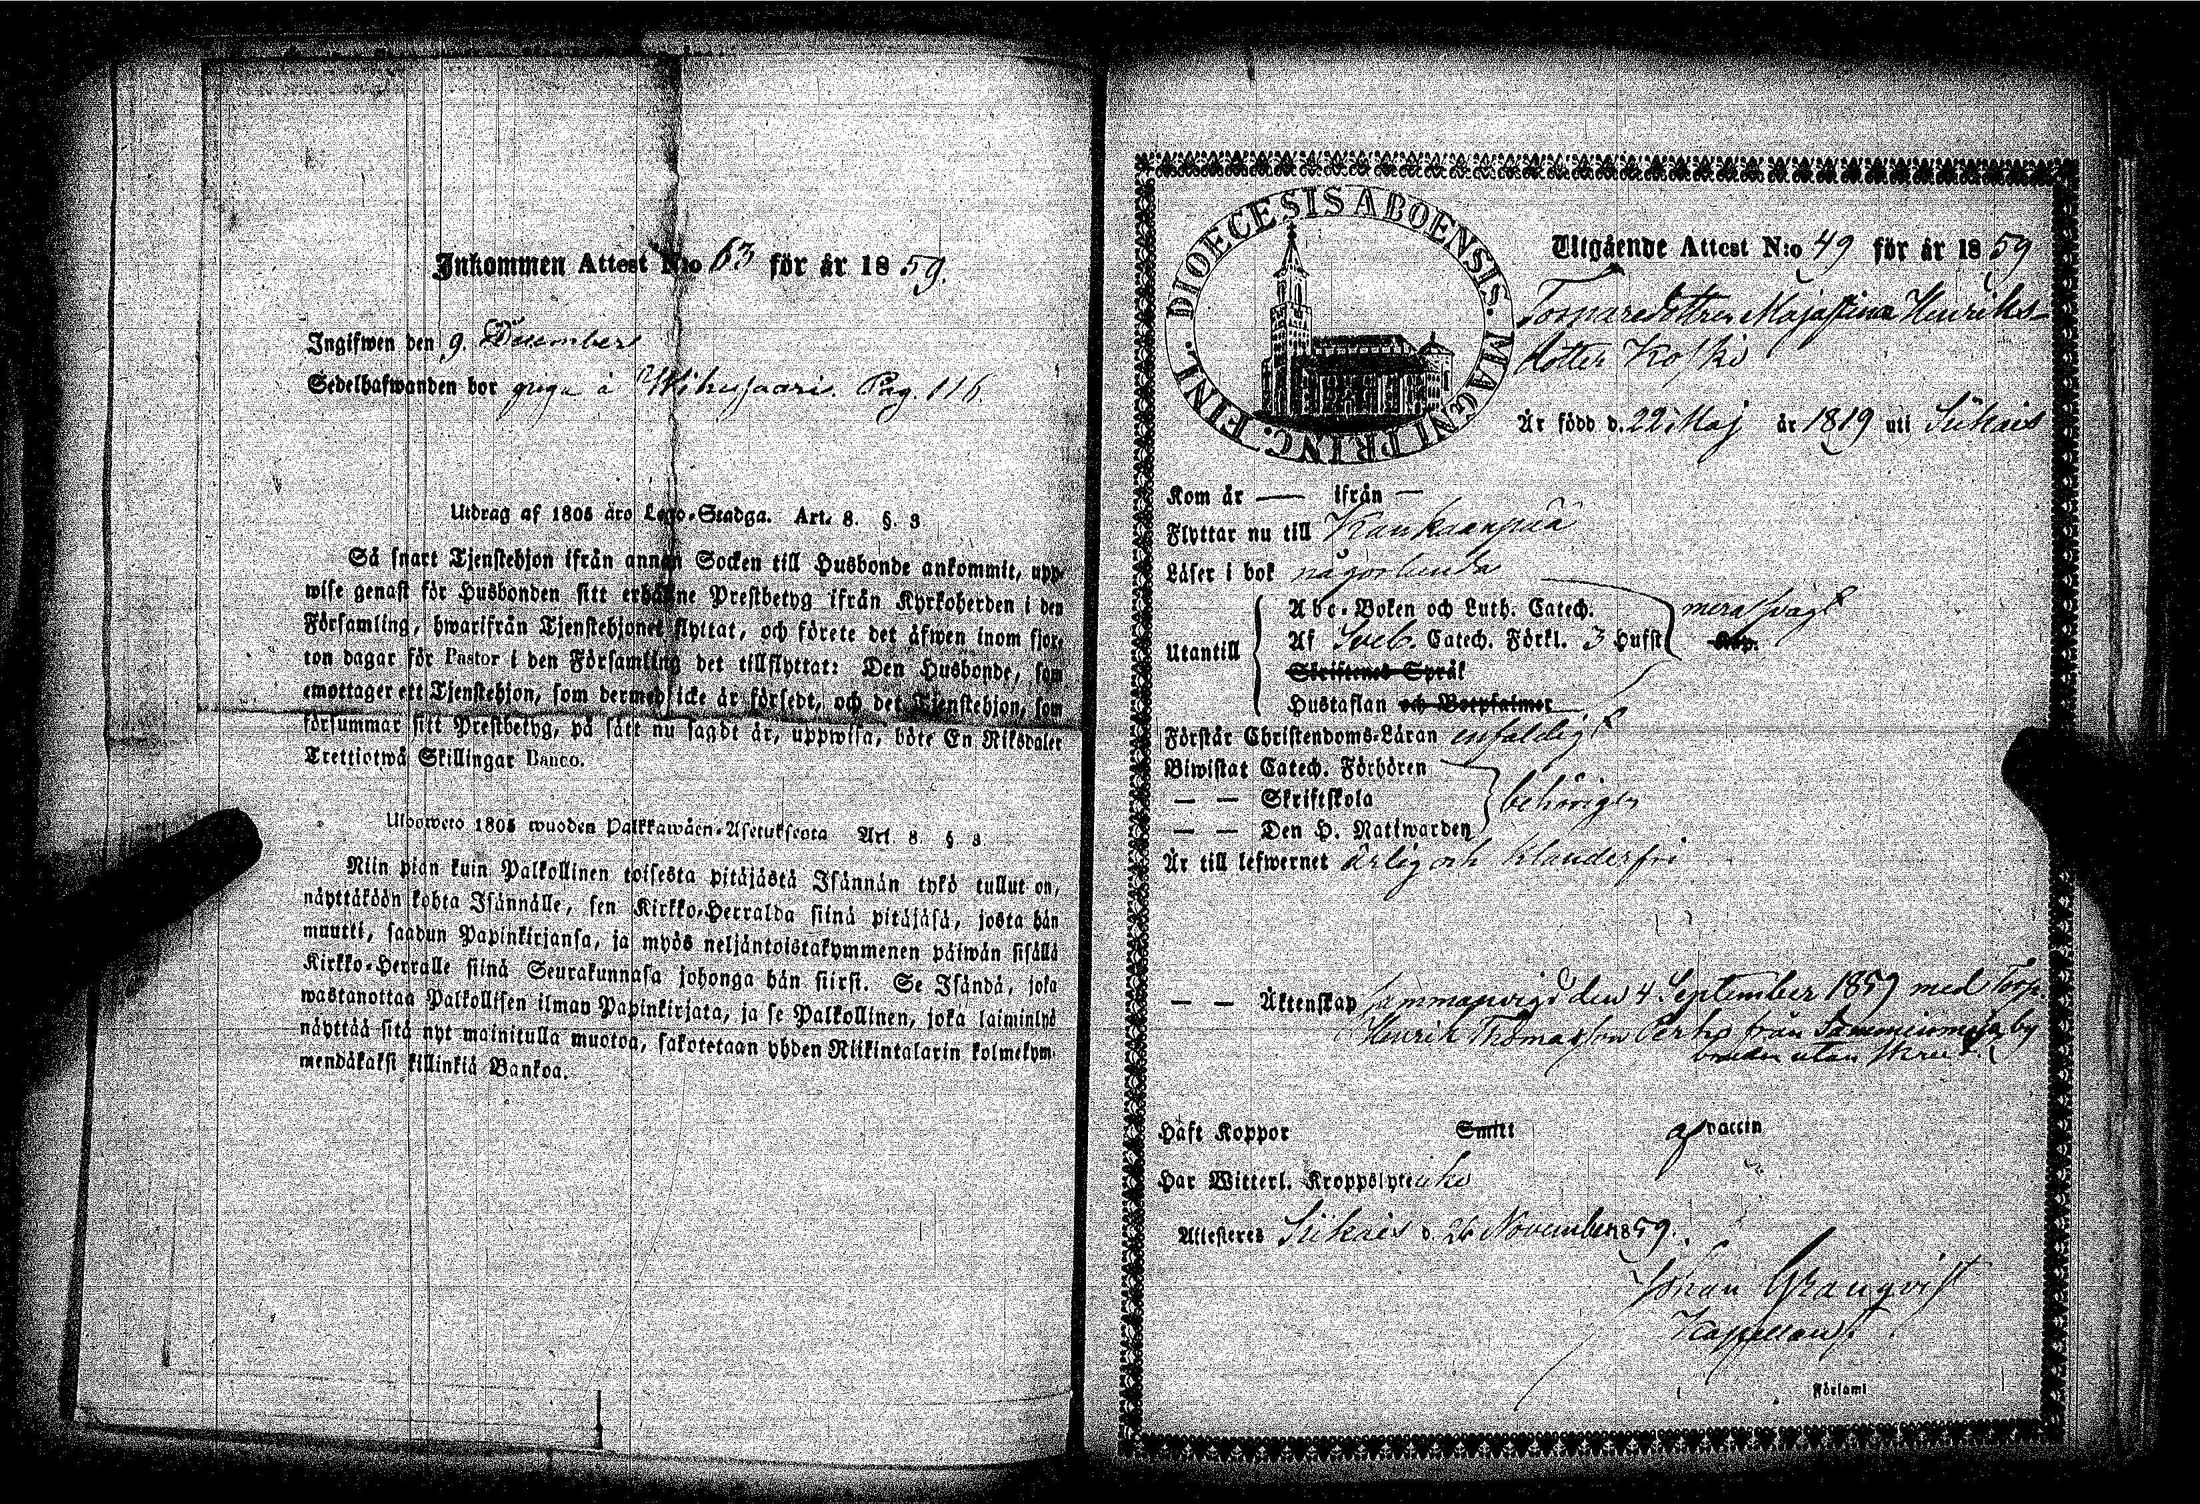 Inkommen Attest N:o 63 för år 1859.
Ingifwen den 9. December
Sedelhafwanden bor à Wihusjaari. Pag. 116.
Utdrag af 1805 års Lego-Stadga. Art. 8. §. 3
Så snart Tjenstehjon ifrån annan Socken till Husbonde ankommit, upp-
wise genast för Husbonden sitt erhållne Prestbetyg ifrån Kyrkoherden i den
Församling, hwarifrån Tjenstehjonet flyttat, och förete det äfwen inom fjor-
ton dagar för Pastor i den Församling det tillflyttat: Den Husbonde, som
emottager ett Tjenstehjon, som dermed icke är försedt, och det Tjenstehjon, som
försummar sitt Prestbetyg, på sätt nu sagdt är, uppwisa, böte En Riksdaler
Trettiotwå Skillingar Banco.
Ulosweto 1805 wuoden Palkkawäen-Asetuksesta Art. 8. § 3
Niin pian kuin Palkollinen toisesta pitäjästä Isännän tykö tullut on,
näyttäköön kohta Isännälle, sen Kirkko-Herralda siinä pitäjäsä, josta hän
muutti, saadun Papinkirjansa, ja myös neljäntoistakymmenen päiwän sisällä
Kirkko-Herralle siinä Seurakunnasa johonga hän siirsi. Se Isändä, joka
wastanottaa Palkollisen ilman Papinkirjata, ja se Palkollinen, joka laiminlyö
näyttää sitä nyt mainitulla muotoa, sakotetaan yhden Riikintalarin kolmekym-
mendäkaksi killinkiä Bankoa.
DIOECESIS ABOENSIS. MAGNI PRINC. FINL.
Utgående Attest N:o 49 för år 1859
Torparedottren Maja Stina Henriks-
dotter Koski
Är född d. 22 Maj år 1819 uti Siikais
Kom år — ifrån —
Flyttar nu till Kankaanpää
Läser i bok någorlunda
Utantill
Abc-Boken och Luth. Catech.
Af Sveb. Catech. Förkl. 3 Hufst.
mera svagt
Skriftenes Språk
Hustaflan och Botpsalmer
Förstår Christendoms-Läran enfaldigt
Biwistat Catech. Förhören
— — Skriftskola
behörigen
— — Den H. Nattwarden
Är till lefwernet ärlig och klanderfri
— — Äktenskap sammanvigd den 4 September 1859 med Torp.
Henrik Thomasson Perho från Sammeinmaja by
bruden utan skrud.
Haft Koppor Smitt af vaccin
Har Witterl. Kroppslyte icke
Attesteres Siikais d. 26 November 1859.
Johan Granqvist
Kapellan
Församl